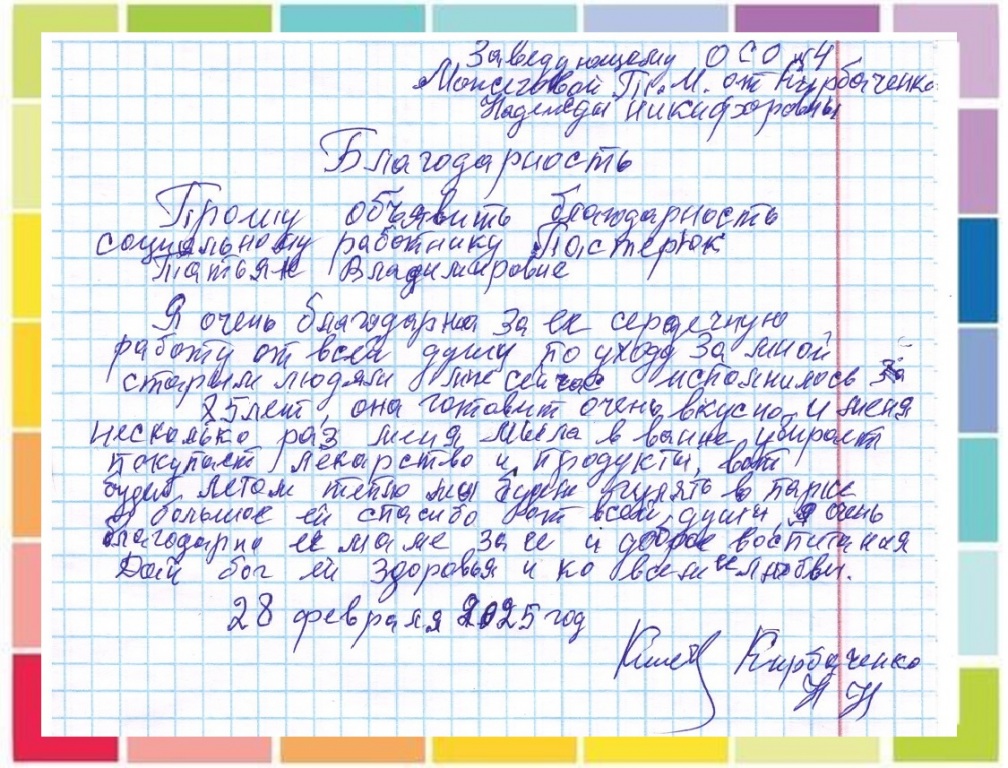 Заведующему ОСО №4
Можеговой Т.М. от Кирбаченко
Надежды Никифоровны
Благодарность
Прошу объявить благодарность
социяльному работнику Постерюк
Татьяне Владимировне
Я очень благодарна за ее сердечную
работу от всей душу по уходу за мной
старым людям мне сейчас исполнилось
85 лет, она готовит очень вкусно, и меня
несколько раз меня мыла в ванне убирает
покупает лекарство и продукти, вот
будет летом тепло мы будем гулять в парке
большое ей спасибо от всей души, я очень
благодарна ее маме за ее и доброе воспитания
Дай бог ей здоровья и ко всем ее любви.
28 февраля 2025 год
Кирбаченко
Н Н